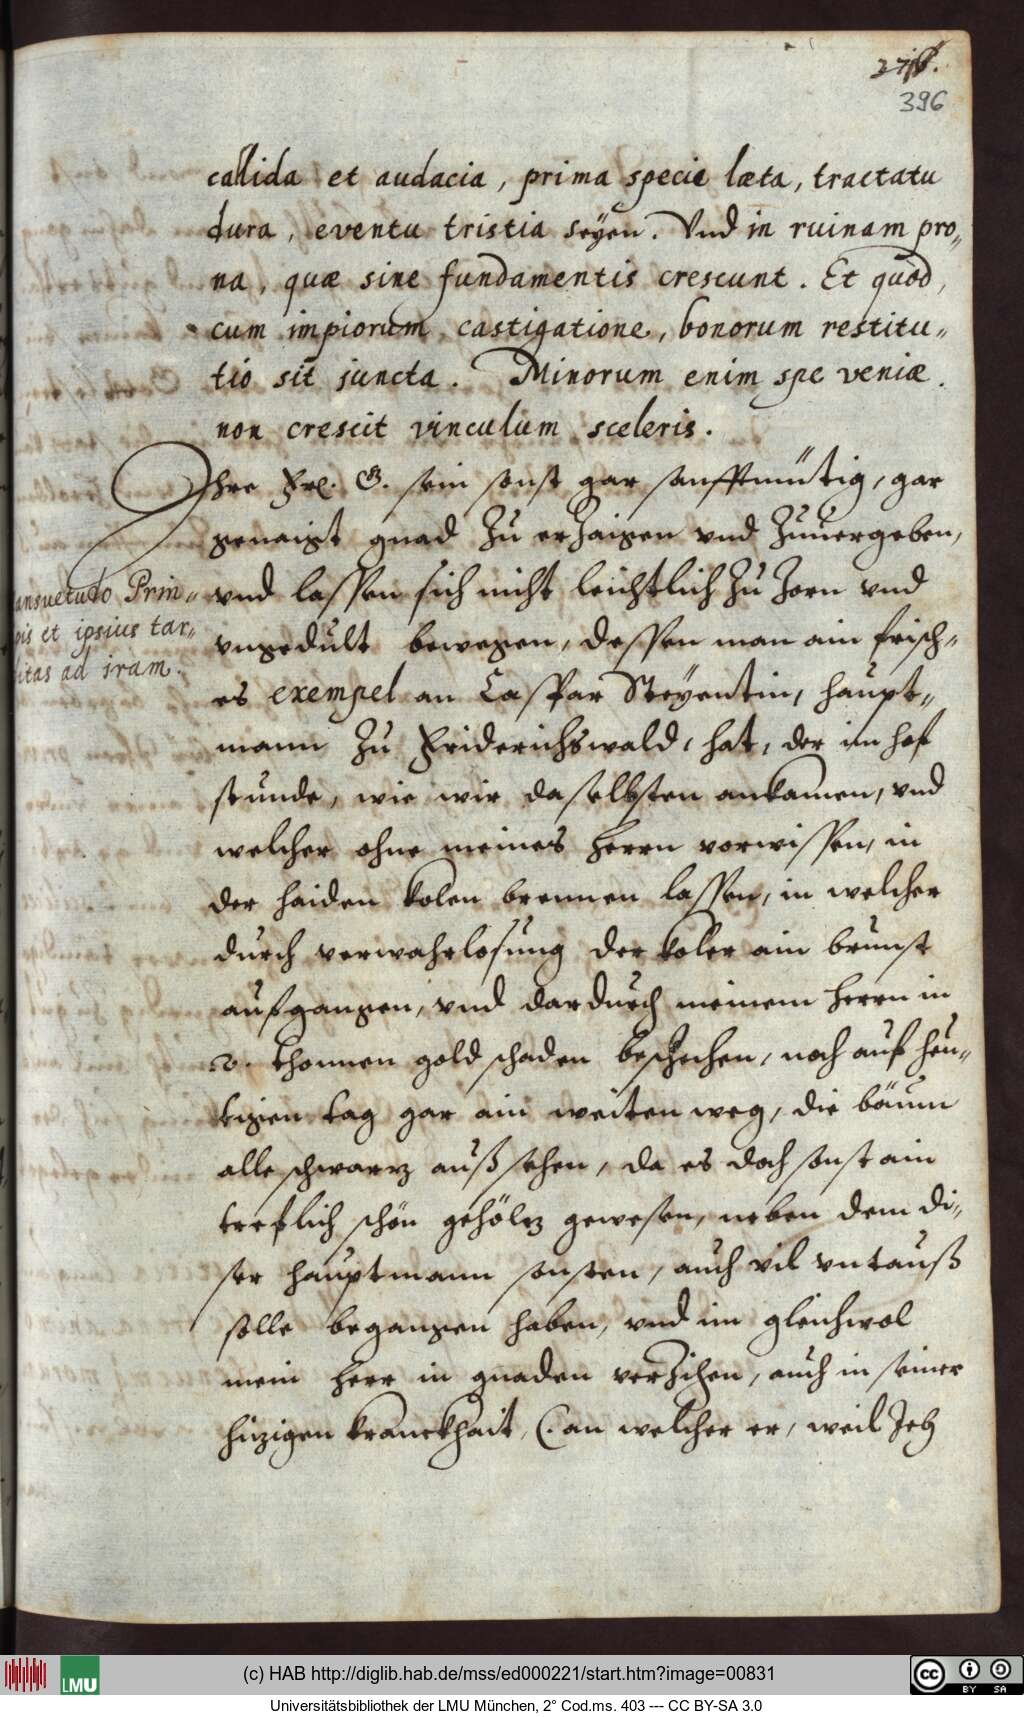 396
callida et audacia, prima specie læta, tractatu
dura, eventu tristia seyen. Vnd in ruinam pro„
na, quæ sine fundamentis crescunt. Et quod,
cum impiorum castigatione, bonorum restitu„
tio sit juncta. Minorum enim spe veniæ
non crescit vinculum sceleris.
Ihre Frl. G. sein sonst gar sanfftmütig, gar
genaigt gnad zu erzaigen vnd zuuergeben,
vnd lassen sich nicht leichtlich zu zorn vnd
vngedult bewegen, dessen man ain frisch„
es exempel an Caspar Steyentin, haupt„
mann zu Friderichswald, hat, der im hof
stunde, wie wir daselbsten ankamen, vnd
welcher ohne meines herrn vorwissen, in
der haiden kolen brennen lassen, in welcher
durch verwahrlosung der koler ain brunst
aufgangen, vnd dardurch meinem herrn in
thonnen gold schaden beschehen, noch auf heu„
tigen tag gar ain weiten weg, die bäum
alle schwarz auß sehen, da es doch sonst ain
treflich schön gehölz gewesen, neben dem di„
ser hauptmann sonsten, auch vil vntauß
solle begangen haben, vnd im gleichwol
mein herr in gnaden verzihen, auch in seiner
hizigen kranckhait, (. an welcher er, weil Ich
ansuetudo Prin„
pis et ipsius tar„
itas ad iram.
(c) HAB http://diglib.hab.de/mss/ed000221/start.htm?image=00831
LMU
cc BY SA
Universitätsbibliothek der LMU München, 2° Cod.ms. 403 --- CC BY-SA 3.0